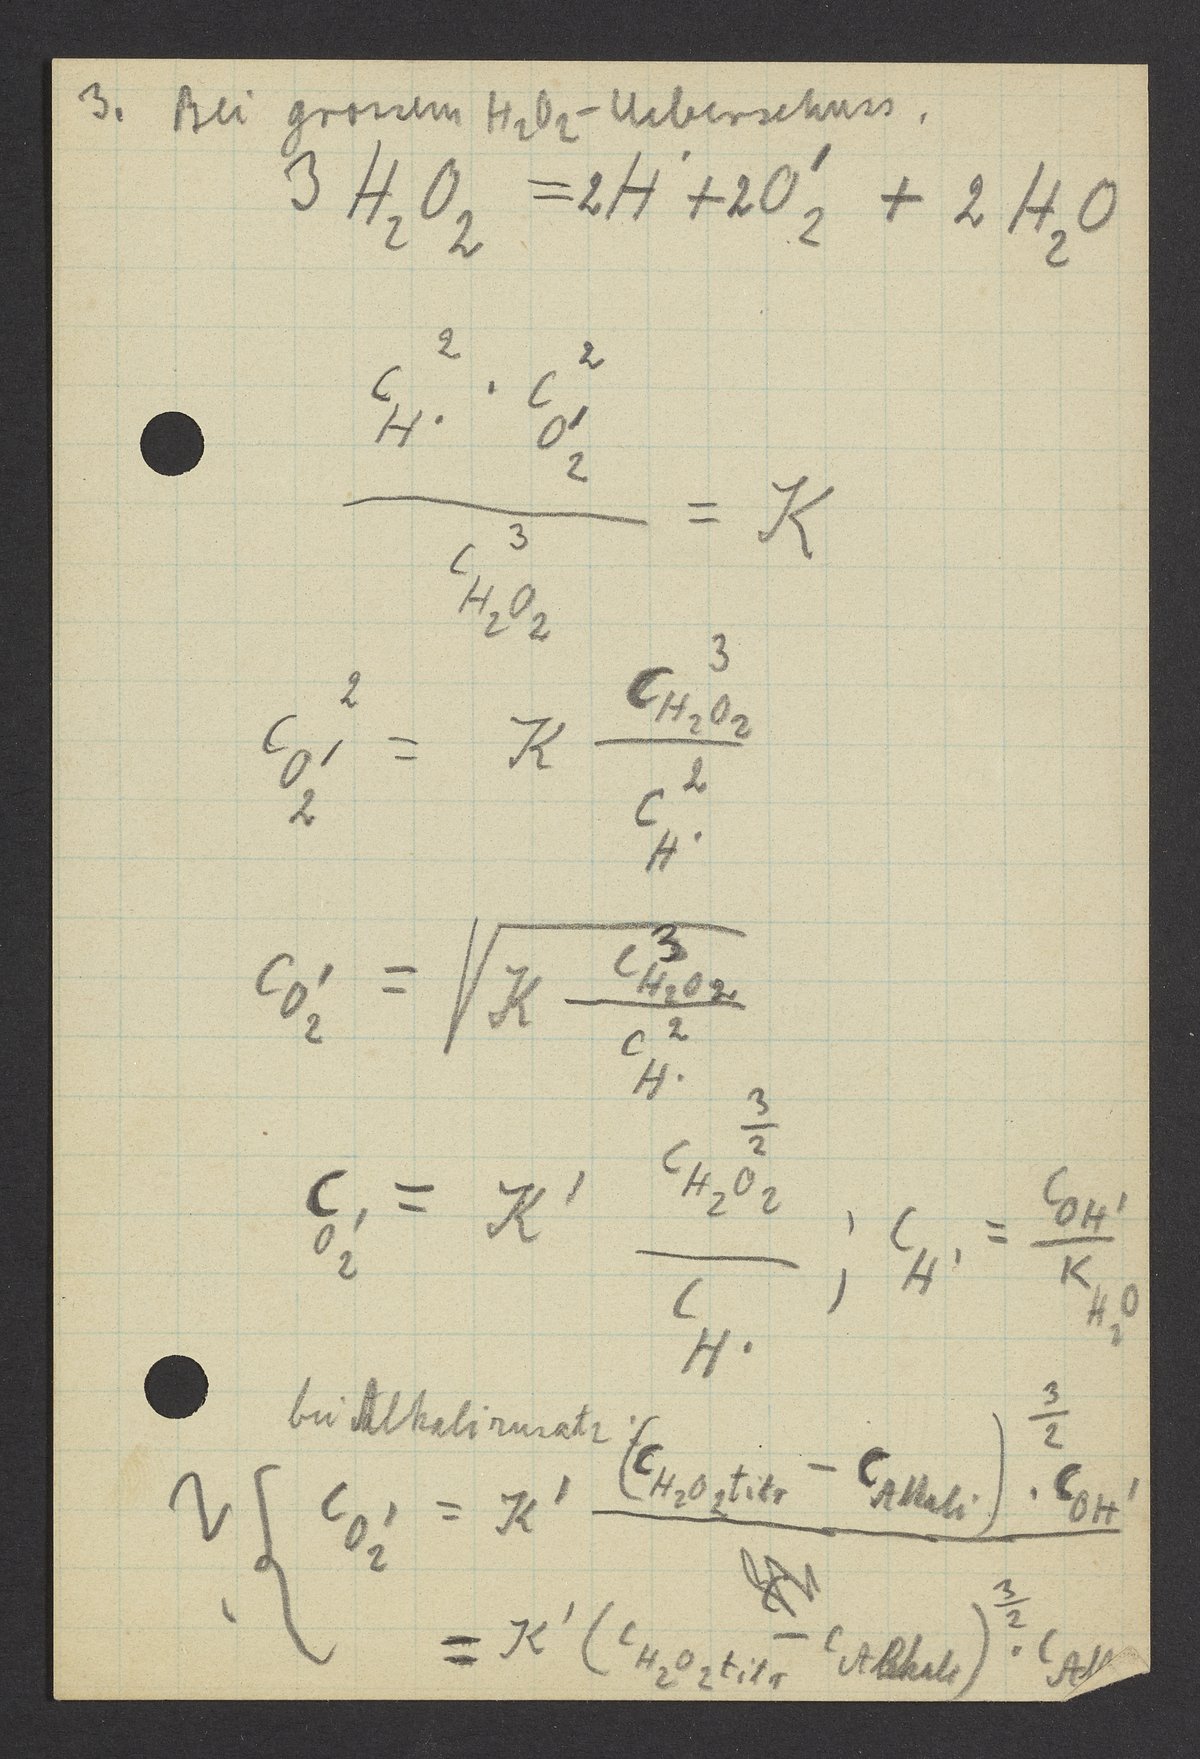 3. Bei grossem H₂O₂-Ueberschuss.
3 H₂O₂ = 2H˙ + 2O₂′ + 2 H₂O
c²_H˙ · c²_O₂′
———— = K
c³_H₂O₂
c²_O₂′ = K c³_H₂O₂ / c²_H˙
c_O₂′ = √(K c³_H₂O₂ / c²_H˙)
c_O₂′ = K′ c_H₂O₂^(3/2) / c_H˙ ; c_H˙ = c_OH′ / K_H₂O
bei Alkalizusatz:
c_O₂′ = K′ (c_H₂O₂titr − c_Alkali)^(3/2) · c_OH′
= K′ (c_H₂O₂titr − c_Alkali)^(3/2) · c_Alk